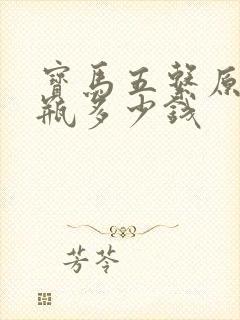 寶馬五繫原
瓶多少錢
芳芩